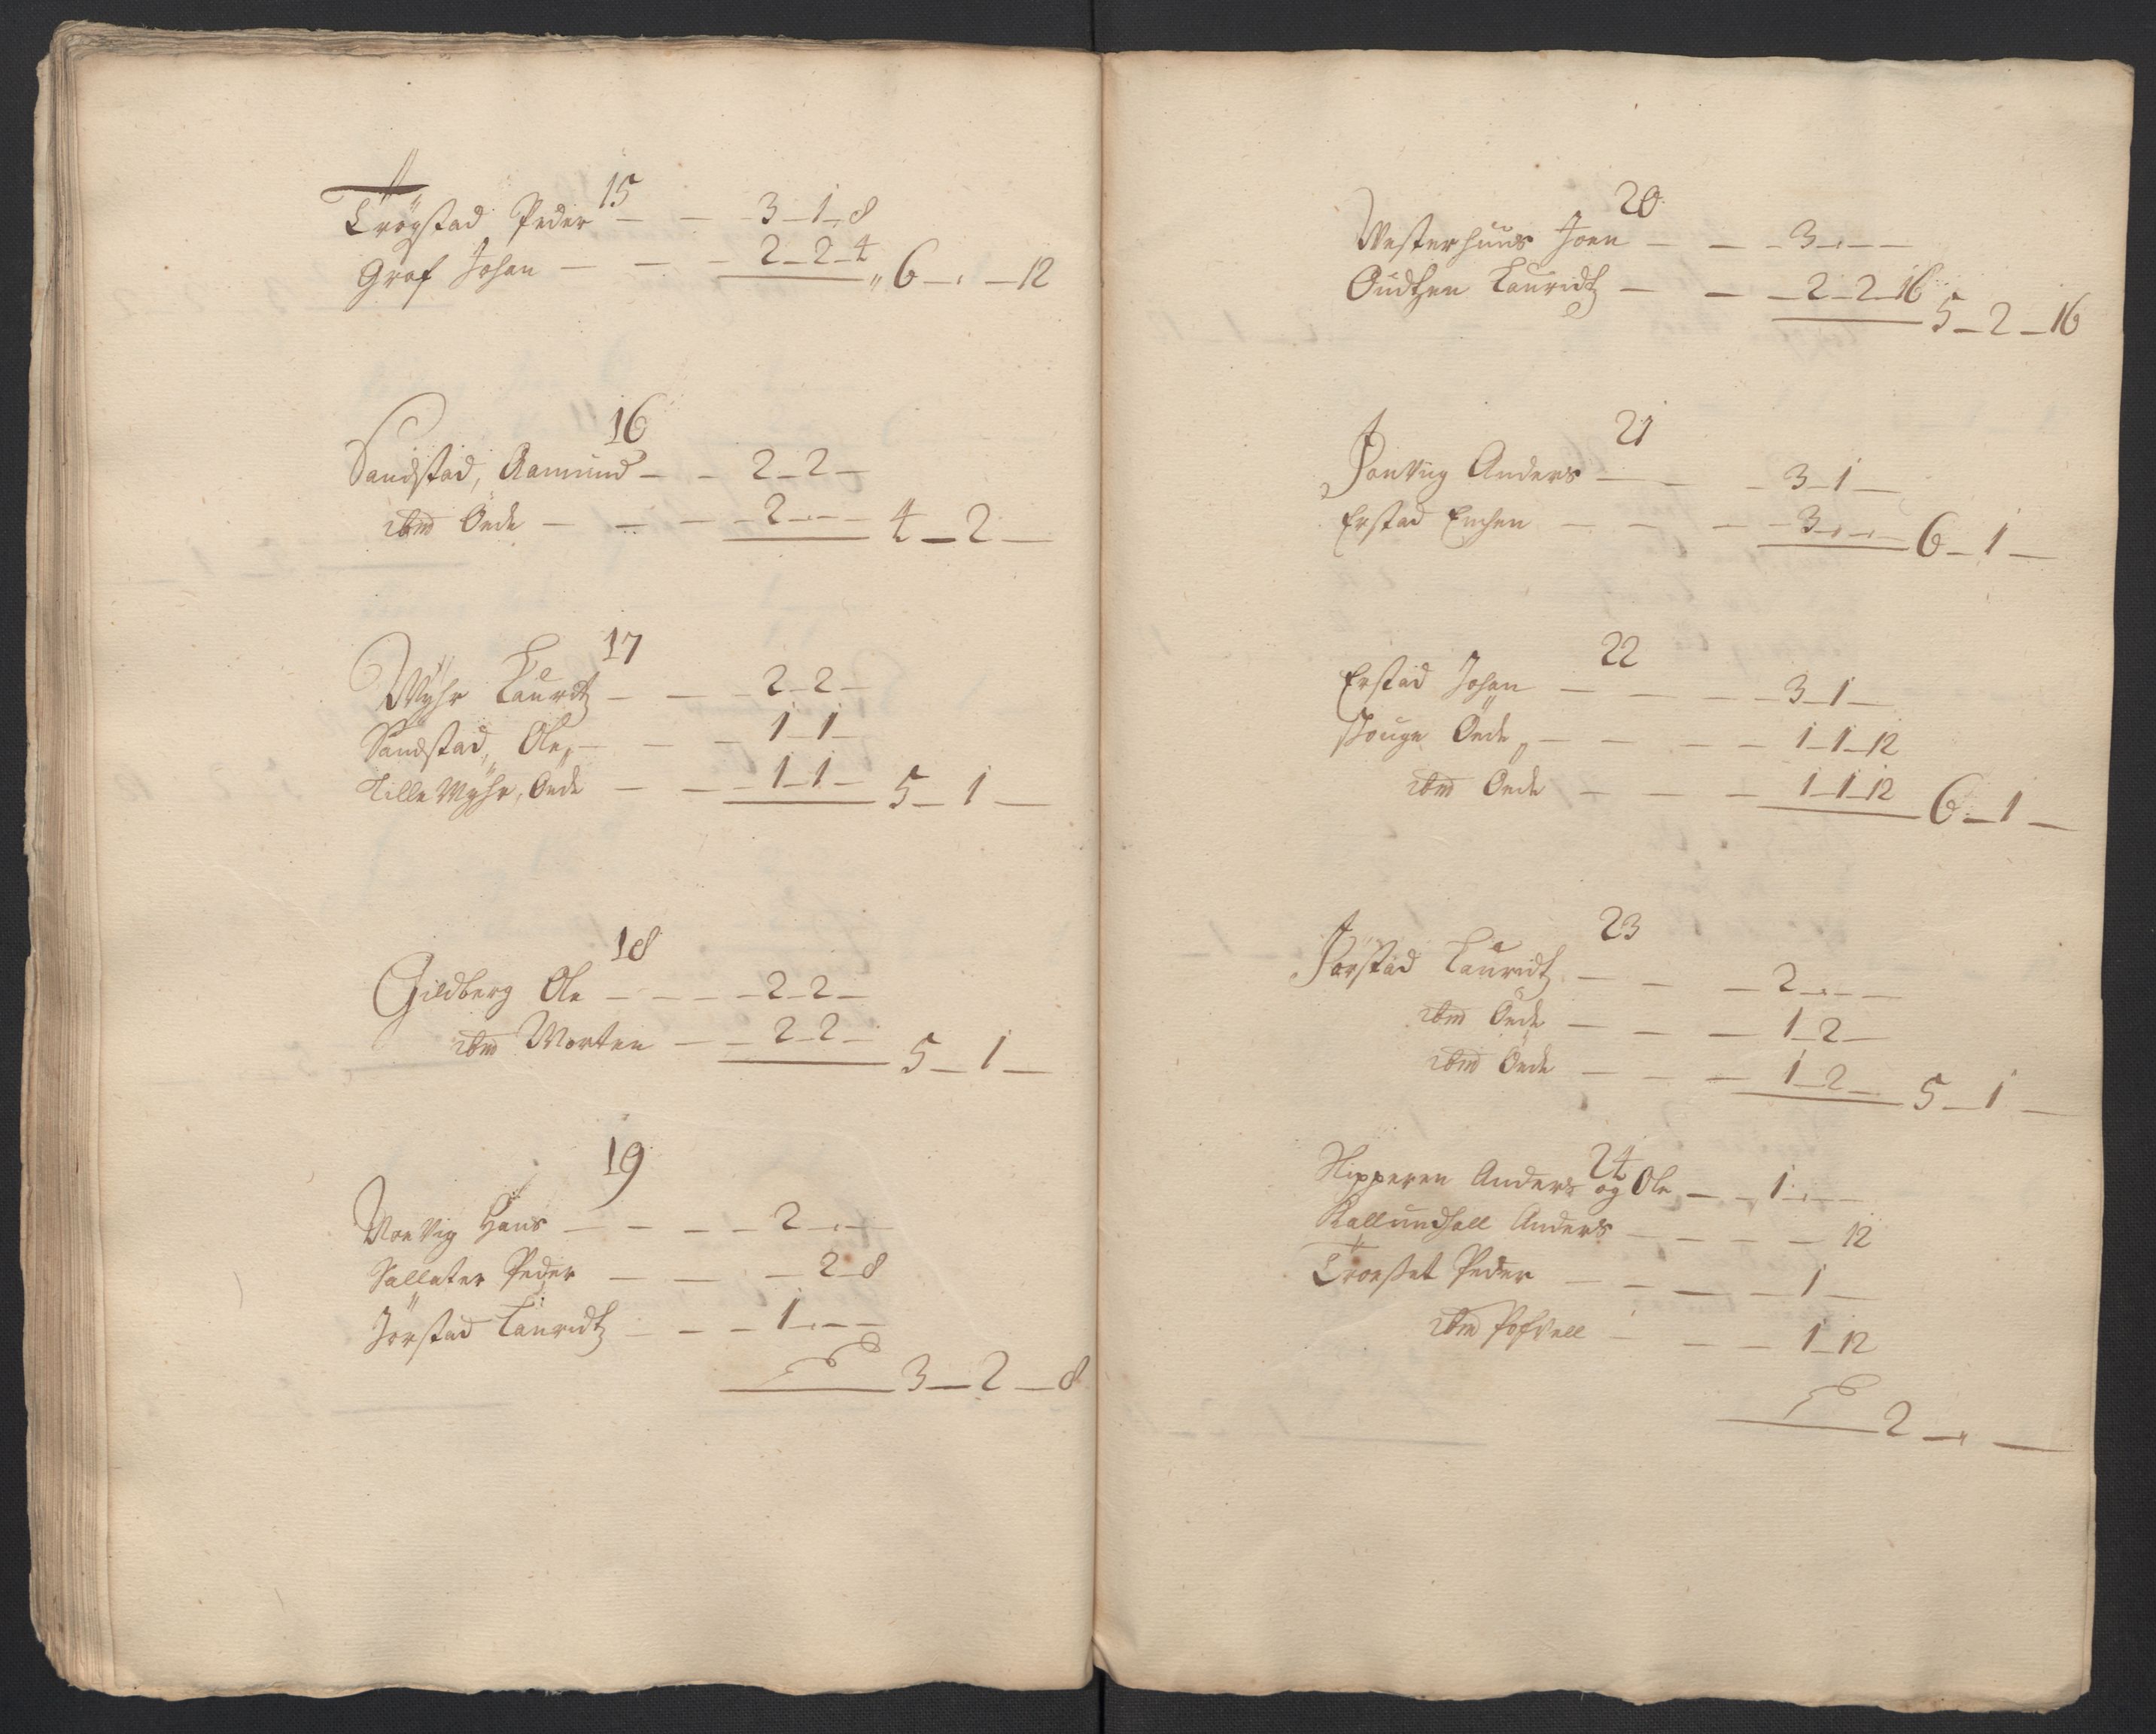 15
Trøgstad Peder — — 3–1–8
Graf Johan — — — 2–2–4 " 6 – " – 12
16
Sandstad, Aamund — — 2–2 —
ibm Øede — — — 2 – " — 4 – 2 —
17
Myhr Lauritz — — 2–2 —
Sandstad, Ole, — — — 1–1 —
Lille Myhr, Øede — — 1–1 — 5 – 1 —
18
Gildberg Ole — — — 2–2 —
ibm Morten — — 2–2 — 5 – 1 —
19
Vig Hans — — — — 2 – " —
Sallater Peder — — — 2–8
Jørstad Lauridtz — — — 1 – " —
3 – 2 – 8
20
Westerhuus Joen — — 3 – " —
Oudthen Lauridtz — — 2–2–16 5 – 2 – 16
21
Anders — — 3–1 —
Erstad — — — 3 – " – " 6 – 1 —
22
Erstad Johan — — — 3–1 —
Øede " — — — — 1–1–12
ibm Øede — — — 1–1–12 6 – 1 —
23
Jørstad Lauridtz — — — 2 – " —
ibm Øede — — — 1–2 —
ibm Øede — — — 1–2 — 5 – 1 —
24
Anders og Ole — — 1 – " —
Anders — — — — 12
Troeset Peder — — — — 1 —
ibm — — — 1–12
2 – " —